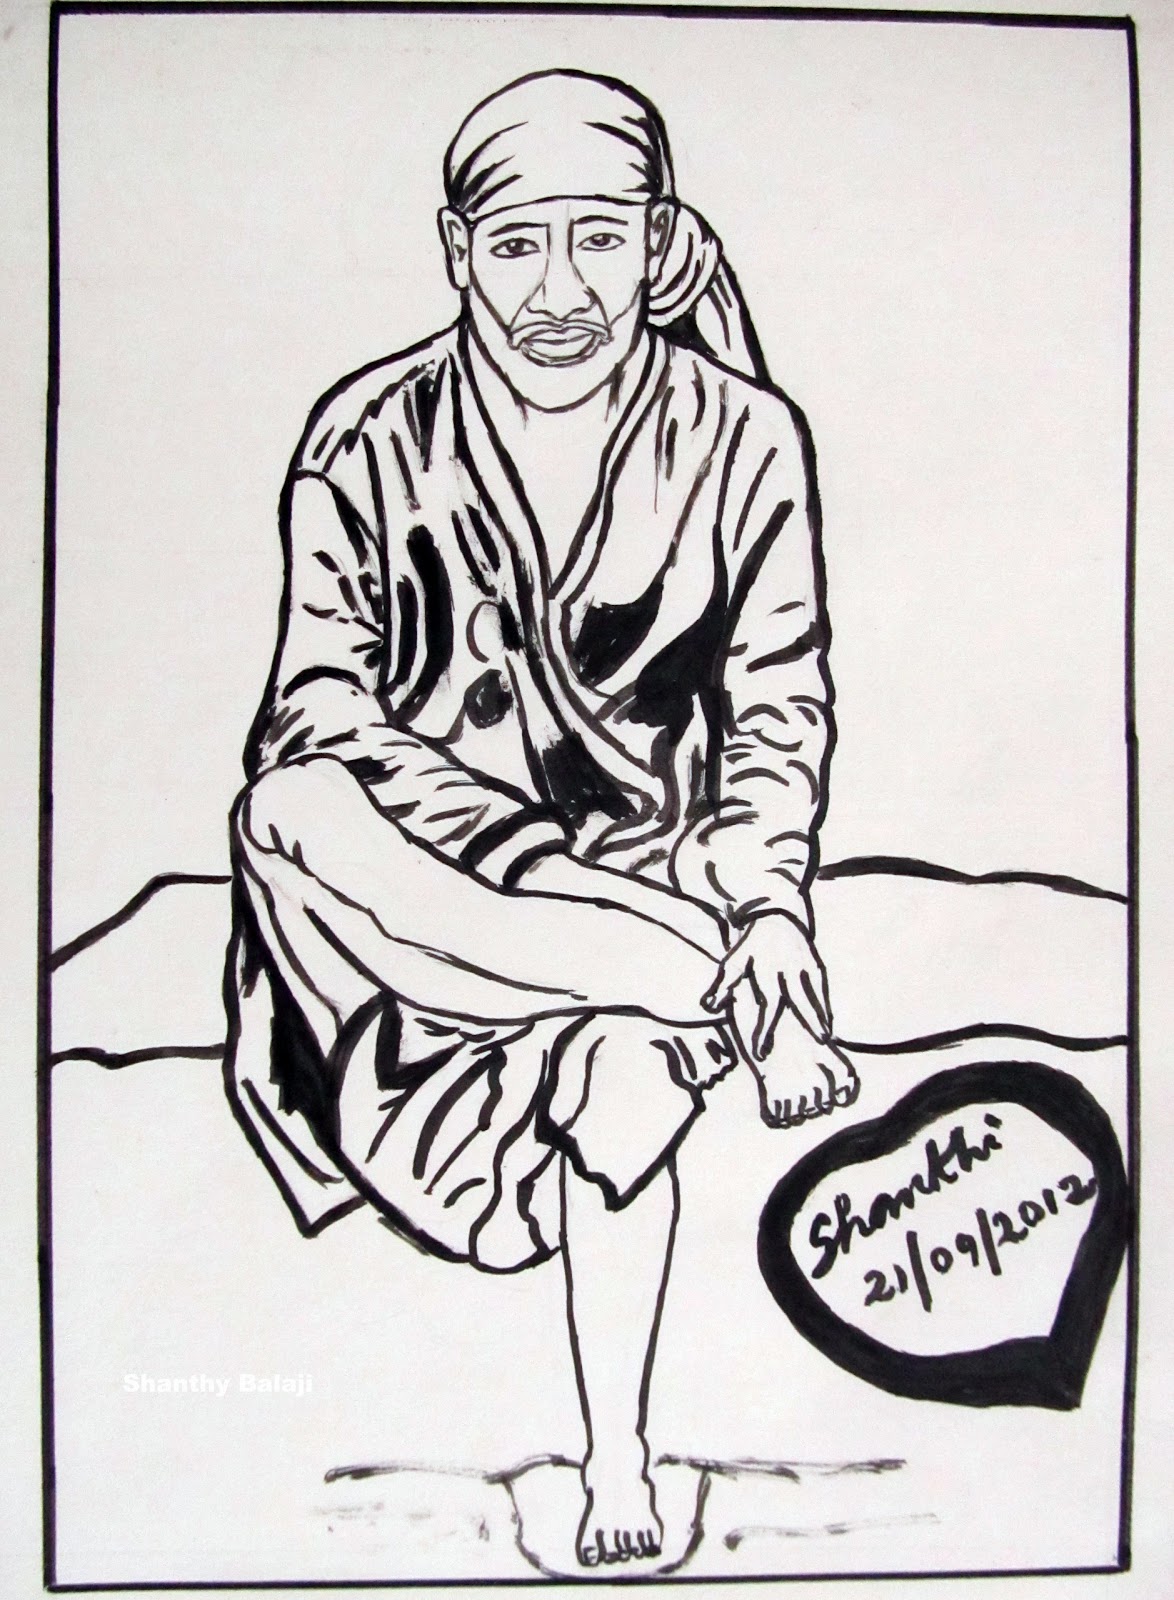 Shankhi
21/09/2012
Shanthy Balaji